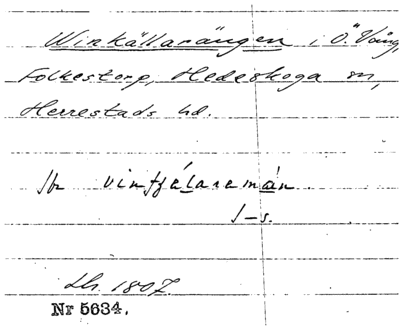 Winkällarängen i Ö. Vång,
Folkestorp, Hedeskoga sn,
Herrestads hd.
vintjelaremán
J-s.
Lh. 1807.
Nr 5634.